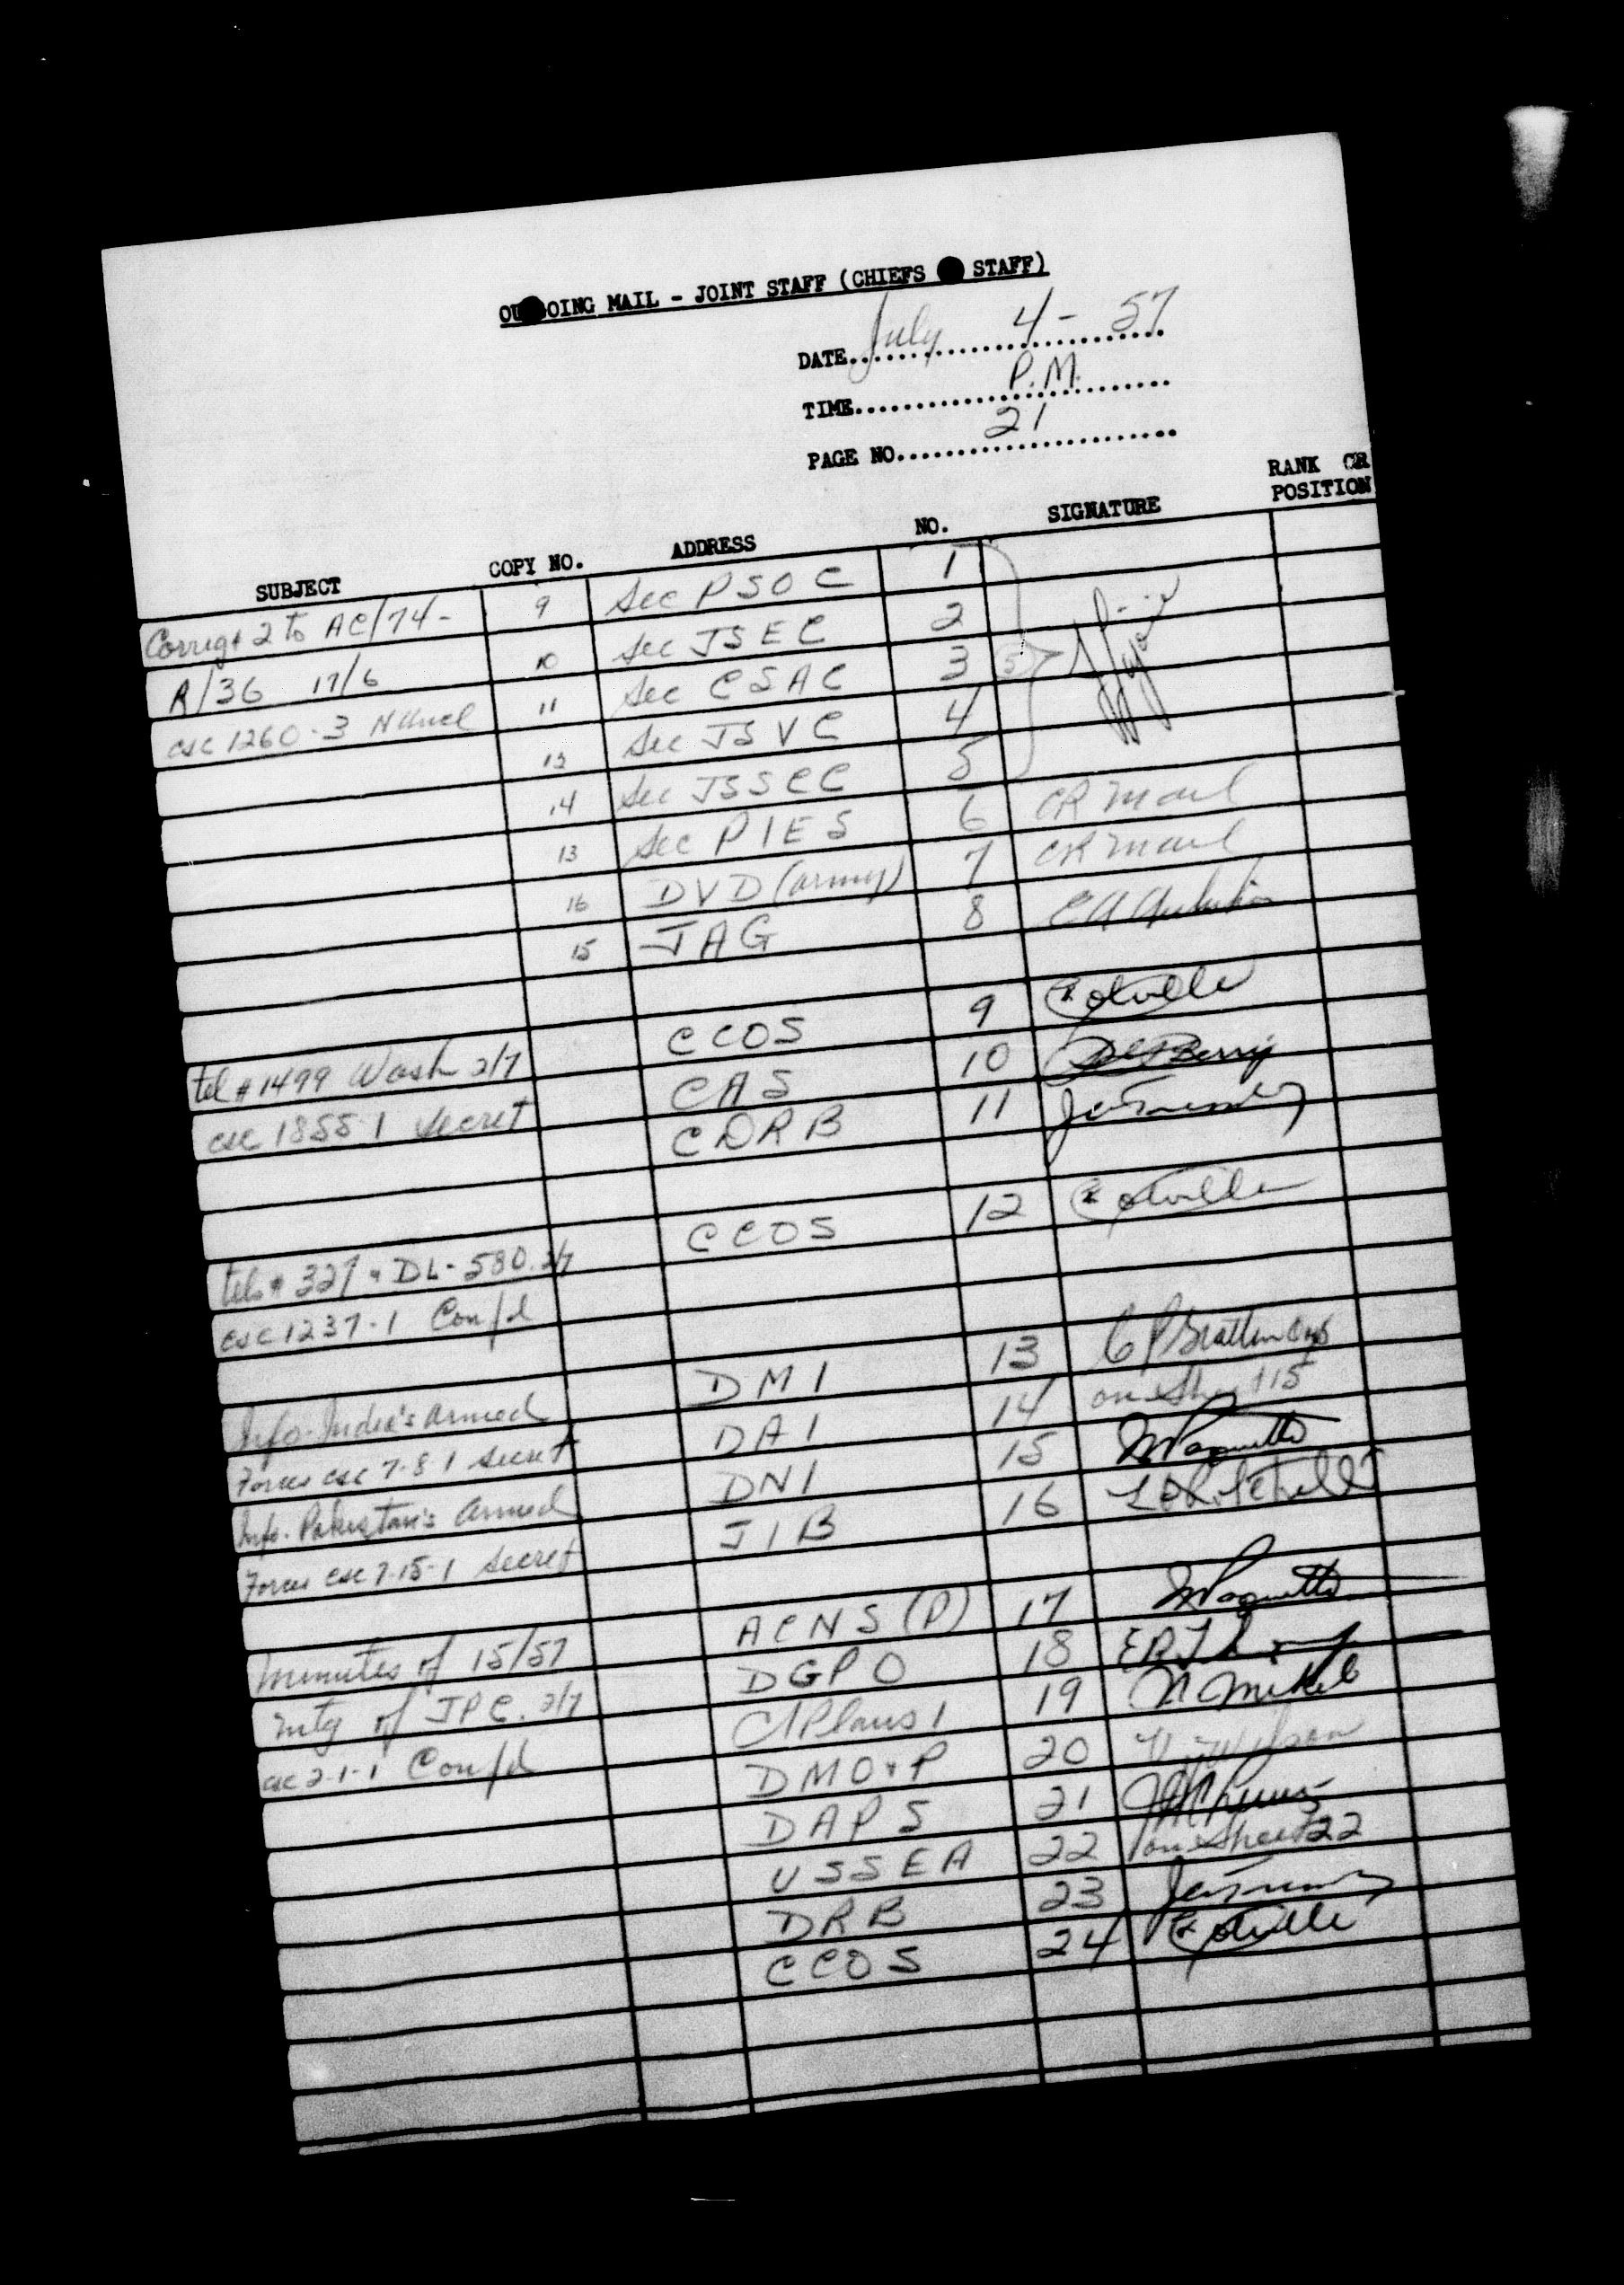 OUTGOING MAIL - JOINT STAFF (CHIEFS STAFF)
DATE July 4 - 57
TIME P.M.
PAGE NO. 21
SUBJECT COPY NO. ADDRESS NO. SIGNATURE RANK OR POSITION
Corrigt 2 to AC/74- 9 Sec PSOC 1
R/36 17/6 10 Sec JSEC 2
csc 1260-3 11 Sec CSAC 3 5
12 Sec JSVC 4
14 Sec JSSCC 5
13 Sec PIES 6 CR Mail
16 DVD (army) 7 CR Mail
15 JAG 8
tel # 1499 Wash 2/7 CCOS 9
csc 1855-1 Secret CAS 10 Berry
CDRB 11
tels # 327 & DL-580. 2/7 CCOS 12
csc 1237-1 Confd
Info-India's armed DMI 13
Forces csc 7-8-1 Secret DAI 14 on Sheet 15
Info. Pakistan's armed DNI 15 Paquette
Forces csc 7-15-1 Secret JIB 16
Minutes of 15/57 ACNS (P) 17 Paquette
mtg of JPC. 2/7 DGPO 18
csc 2-1-1 Confd CPlans 1 19
DMO&P 20
DAPS 21
USSEA 22 on Sheet 22
DRB 23
CCOS 24